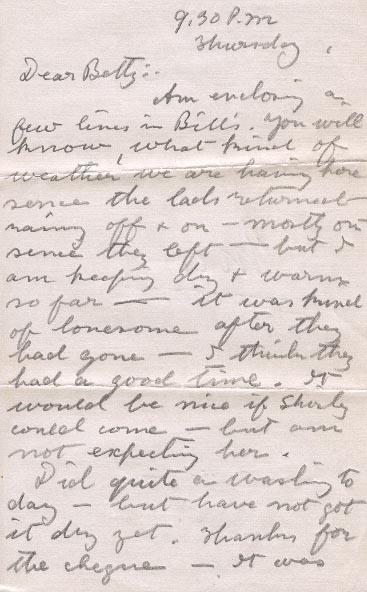 9.30 P.m
Thursday,
Dear Betty:-
Am enclosing a
few lines in Bill's. You will
know, what kind of
weather we are having here
sence the lads returned
rainy off & on - mostly on
sence they left - but I
am keeping dry & warm
so far — it was kind
of lonesome after they
had gone — I think they
had a good time. It
would be nice if Shirly
could come - but am
not expecting her.
Did quite a washing to
day - but have not got
it dry yet. Thanks for
the cheque — It was